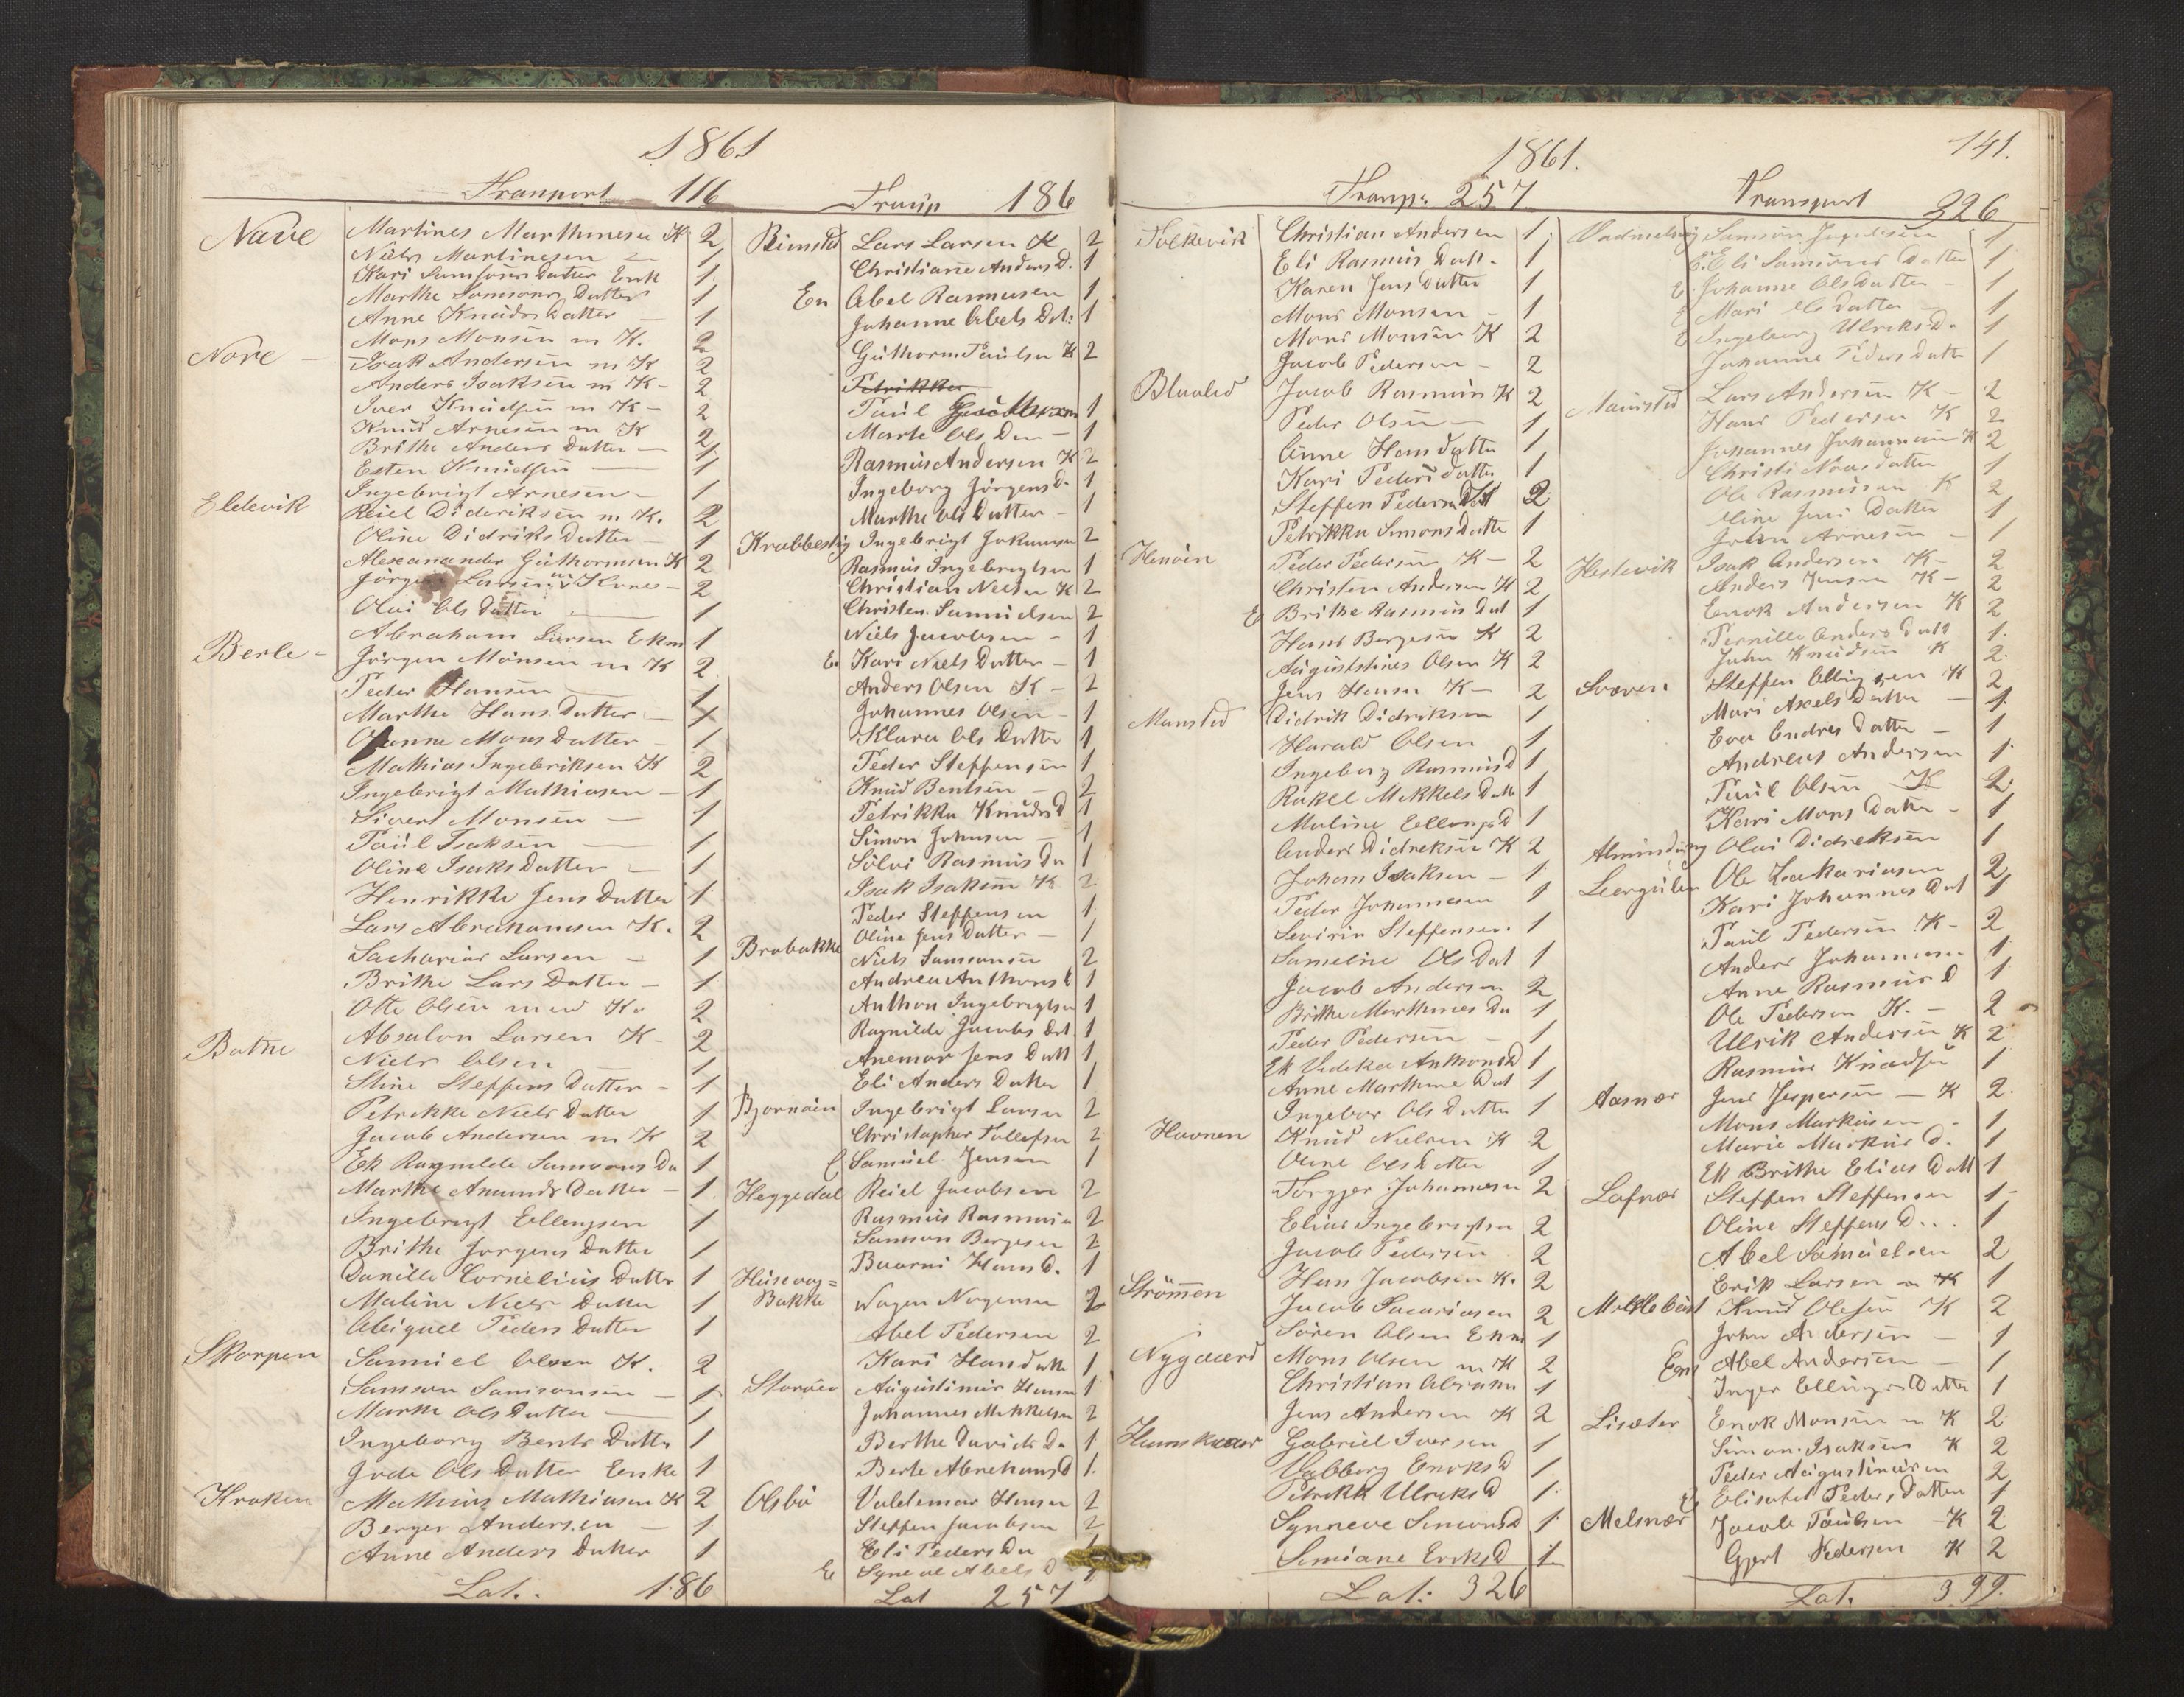 1861
Transport 116
Nave Martines Marthinesen K 2
Niels Martinesen 1
Kari Samsons Datter Enk 1
Marthe Samsons Datter 1
Anne Knuds Datter 1
Mons Monsen m K. 2
Nore Isak Andersen m K 2
Anders Isaksen m K 2
Iver Knudsen m K 2
Knud Arnesen m K 2
Brithe Anders Datter 1
Esten Knudsen 1
Ingebrigt Arnesen 1
Eldevik Reiel Dideriksen m K. 2
Oline Didriks Datter 1
Alexanander Guthormsen K 2
Jörgen Larsen m Kone 2
Olai Ols Datter 1
Abraham Larsen Ekm 1
Berle Jörgen Monsen m K 2
Peder Hansen 1
Marthe Hans Datter 1
Mons Datter 1
Mathias Ingebriksen K 2
Ingebrigt Mathiasen 1
Sivert Monsen 1
Paul Isaksen 1
Oline Isaks Datter 1
Henrikke Jens Datter 1
Lars Abrahamsen K. 2
Sacharias Larsen 1
Brithe Lars Datter 1
Otte Olsen med K. 2
Absalon Larsen K 2
Batne Niels Olsen 1
Stine Steffens Datter 1
Petrikke Niels Datter 1
Jacob Andersen m K 2
Ek Ragnilde Samsons Da 1
Marthe Amunds Datter 1
Ingebrigt Ellingsen 1
Brithe Jorgens Datter 1
Danille Cornelius Datter 1
Maline Niels Datter 1
Abigael Peders Datter 1
Skorpen Samuel Olsen K. 2
Samson Samsonsen 1
Marthe Ols Datter 1
Ingeborg Bents Datter 1
Jode Ols Datter Enke 1
Kroken Mathias Mathiasen K 2
Berger Andersen 1
Anne Anders Datter 1
Lat. 186
Transp 186
Rimsted Lars Larsen K 2
Christiane Anders D. 1
En Abel Rasmusen 1
Johanne Abels Dat: 1
Guthorm Paulsen K 2
Petrikke
Paul Guthorm 1
Marte Ols Da 1
Rasmus Andersen K 2
Ingeborg Jörgens D. 1
Marthe Ols Datter 1
Krabbestig Ingebrigt Johannesen 2
Rasmus Ingebrigtsen 1
Christian Nielsen K 2
Christen Samuelsen 2
Niels Jacobsen 1
E. Kari Niels Datter 1
Anders Olsen K 2
Johannes Olsen 1
Klara Ols Datter 1
Peder Steffensen 1
Knud Bentsen 2
Petrikka Knuds D 1
Simon Johnsen 1
Sölvi Rasmus Da 1
Isak Isaksen K 2
Peder Steffensen 1
Oline Jens Datter 1
Brobakke Niels Samsonsen 2
Andrea Anthons D 1
Anthon Ingebrigtsen 1
Ragnilde Jacobs Dat 1
Anemar Jens Datt 1
Eli Anders Datter 1
Bjornöen Ingebrigt Larsen 2
Christopher Tollefsen 2
E Samuel Jensen 1
Heggedal Reiel Jacobsen 2
Rasmus Rasmusen 2
Samson Bergesen 2
Baarni Hans D. 1
Husevog=
Bakke Wagen Nogensen 2
Abel Pedersen 2
Kari Hans datte 1
Storöen Augustinus Hansen 1
Johannes Mikkelsen 2
Berthe Davids Da 1
Berte Abrehams D 1
Olsbö Valdemar Hansen 2
Steffen Jacobsen 2
Eli Peders Da 1
E Syneve Abels D 1
Lat 257
141.
1861.
Transp: 257
Tolkevik Christian Andersen 1
Eli Rasmus Datt. 1
Karen Jens Datter 1
Mons Monsen 1
Mons Monsen K 2
Jacob Pedersen 2
Blaalid Jacob Rasmus K 2
Peder Olsen 1
Anne Hans datter 1
Kari Peders datter 1
Steffen Pedersen K 2
Petrikka Simons Datte 1
Henöen Peder Pedersen K 2
Christen Andersen K 2
E Brithe Rasmus Dat 1
Hans Bergesen K 2
Augustinus Olsen K 2
Jens Hansen K 2
Mansted Didrik Didriksen 1
Harald Olsen 1
Ingeborg Rasmus D 1
Rakel Mikkels Datt 1
Maline Ellings D 1
Anders Didreksen K 2
Johans Isaksen 1
Peder Johannesen 1
Severin Steffensen 1
Sameline Ols Dat 1
Jacob Andersen 2
Brithe Marthines Da 1
Peder Pedersen 1
Ek Vedeka Anthons D 1
Anne Marthine Dat 1
Ingebor Ols Datter 1
Havnen Knud Nielsen K 2
Oline Ols datter 1
Torgjer Johannesen 2
Elias Ingebrigtsen 2
Jacob Pedersen 2
Strömen Hans Jacobsen K. 2
Jacob Sacariasen 2
Sören Olsen Enm 1
Nygaard Mons Olsen m K 2
Christian Abraha 1
Jens Andersen K 2
Humskaar Gabriel Iversen 1
Valborg Enoks D 1
Petrikk Ulriks D 1
Synneve Simons D 1
Simiane Eriks D 1
Lat: 326
Transport 326
Samson 1
E. Eli Samsons Datter 1
E. Johanne Ols Datter 1
E Mari Ols Datter 1
E Ingeborg Ulriks D. 1
Johanne Peders Datte 1
Maursted Lars Andersen K 2
Hans Pedersen K 2
Johannes Johannesen K 2
Christi Noas datter 1
Ole Rasmusen K 2
Oline Jens Datter 1
John Arnesen 1
Hestevik Isak Andersen K 2
Anders Jensen K 2
Enok Andersen K 2
Pernille Anders Datt 1
John Knudsen K 2
Svaven Steffen Ellingsen K 2
Mari Axels Datter 1
Eva Endres Datter 1
Andreas Andersen 1
Paul Olsen K 2
Kari Mons Datter 1
Almending Olai Didreksen 1
Leergulen Ole Zakariasen 2
Kari Johannes Dat 1
Paul Pedersen K 2
Anders Johannesen 1
Anne Rasmus D 1
Ole Pedersen K. 2
Ulrik Andersen K 2
Rasmus Knudsen 1
Aasnæs Jens Jespersen K 2
Mons Markusen 1
Marie Markus D. 1
Ek Brithe Elias Datt 1
Lofnæs Steffen Steffensen 1
Oline Steffens D.. 1
Abel Samuelsen 2
Erik Larsen m K 1
Mollebust Knud Olesen K 2
John Andersen 1
Enm Abel Andersen 1
Inger Ellings Datter 1
Lisæter Enok Monsen m K 2
Simon Isaksen K 2
Peder Augustinusen 2
E Elisabet Peders Datter 1
Melsnæs Jacob Paulsen K 2
Gjert Pedersen K 2
Lat. 399.